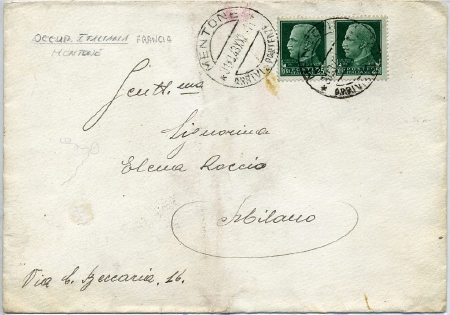 OCCUP. ITALIANA FRANCIA
MENTONE
MENTONE
ARRIVI E PARTENZE
25 25
Gent.ma
Signorina
Elena Roccio
Milano
Via C. Beccaria, 16.